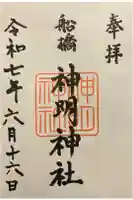 奉拝
船橋
神明神社
令和七年六月十六日